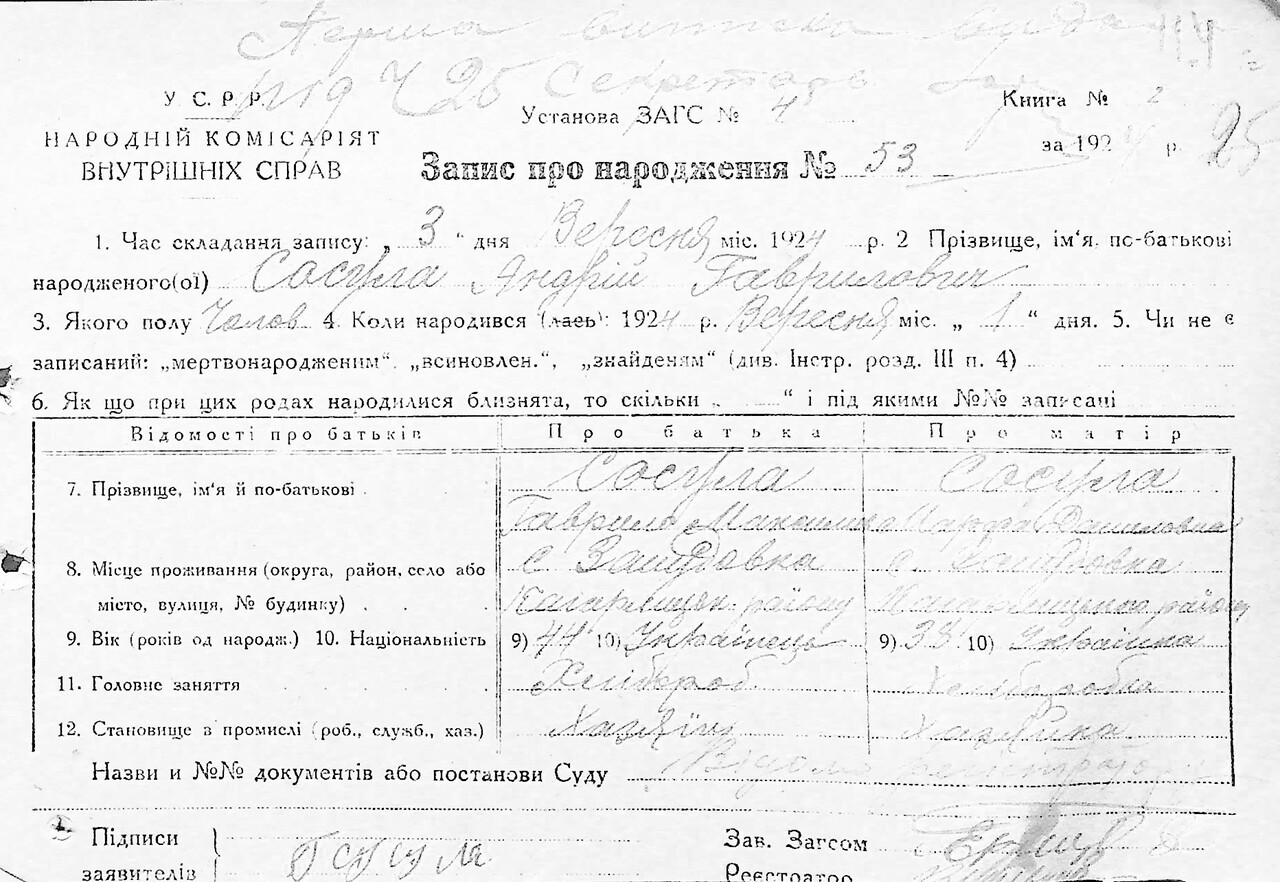 Перша виписка вида
під Ч 25 Секретарь
У С. Р. Р.
НАРОДНІЙ КОМІСАРІЯТ
ВНУТРІШНІХ СПРАВ
Установа ЗАГС № 4
Книга № 2
за 1924 р. 25
Запис про народження № 53
1. Час складання запису: „ 3 “ дня Вересня міс. 1924 р. 2 Прізвище, ім‘я. по-батькові
народженого(ої) Сосула Андрій Гаврилович
3. Якого полу Чолов 4. Коли народився (лась): 1924 р. Вересня міс. „ 1 “ дня. 5. Чи не є
записаний: „мертвонародженим“. „всиновлен.“, „знайденям“ (див. Інстр. розд. III п. 4)
6. Як що при цих родах народилися близнята, то скільки „ “ і під якими №№ записані
Відомості про батьків Про батька Про матір
7. Прізвище, ім‘я й по-батькові Сосула Сосула
Гаврило Максимов Марта Даниловна
8. Місце проживання (округа, район, село або
місто, вулиця, № будинку)
с. с.
Кагарлицьк. району Кагарлицького району
9. Вік (років од народж.) 10. Національність 9) 44 10) Українець 9) 33 10) Українка
11. Головне заняття Хлібороб Хлібаробка
12. Становище з промислі (роб., служб., хаз.) Хазяїн Хазяйка
Назви и №№ документів або постанови Суду Відомо
Підписи
заявителів
Зав. Загсом
Реєстратор